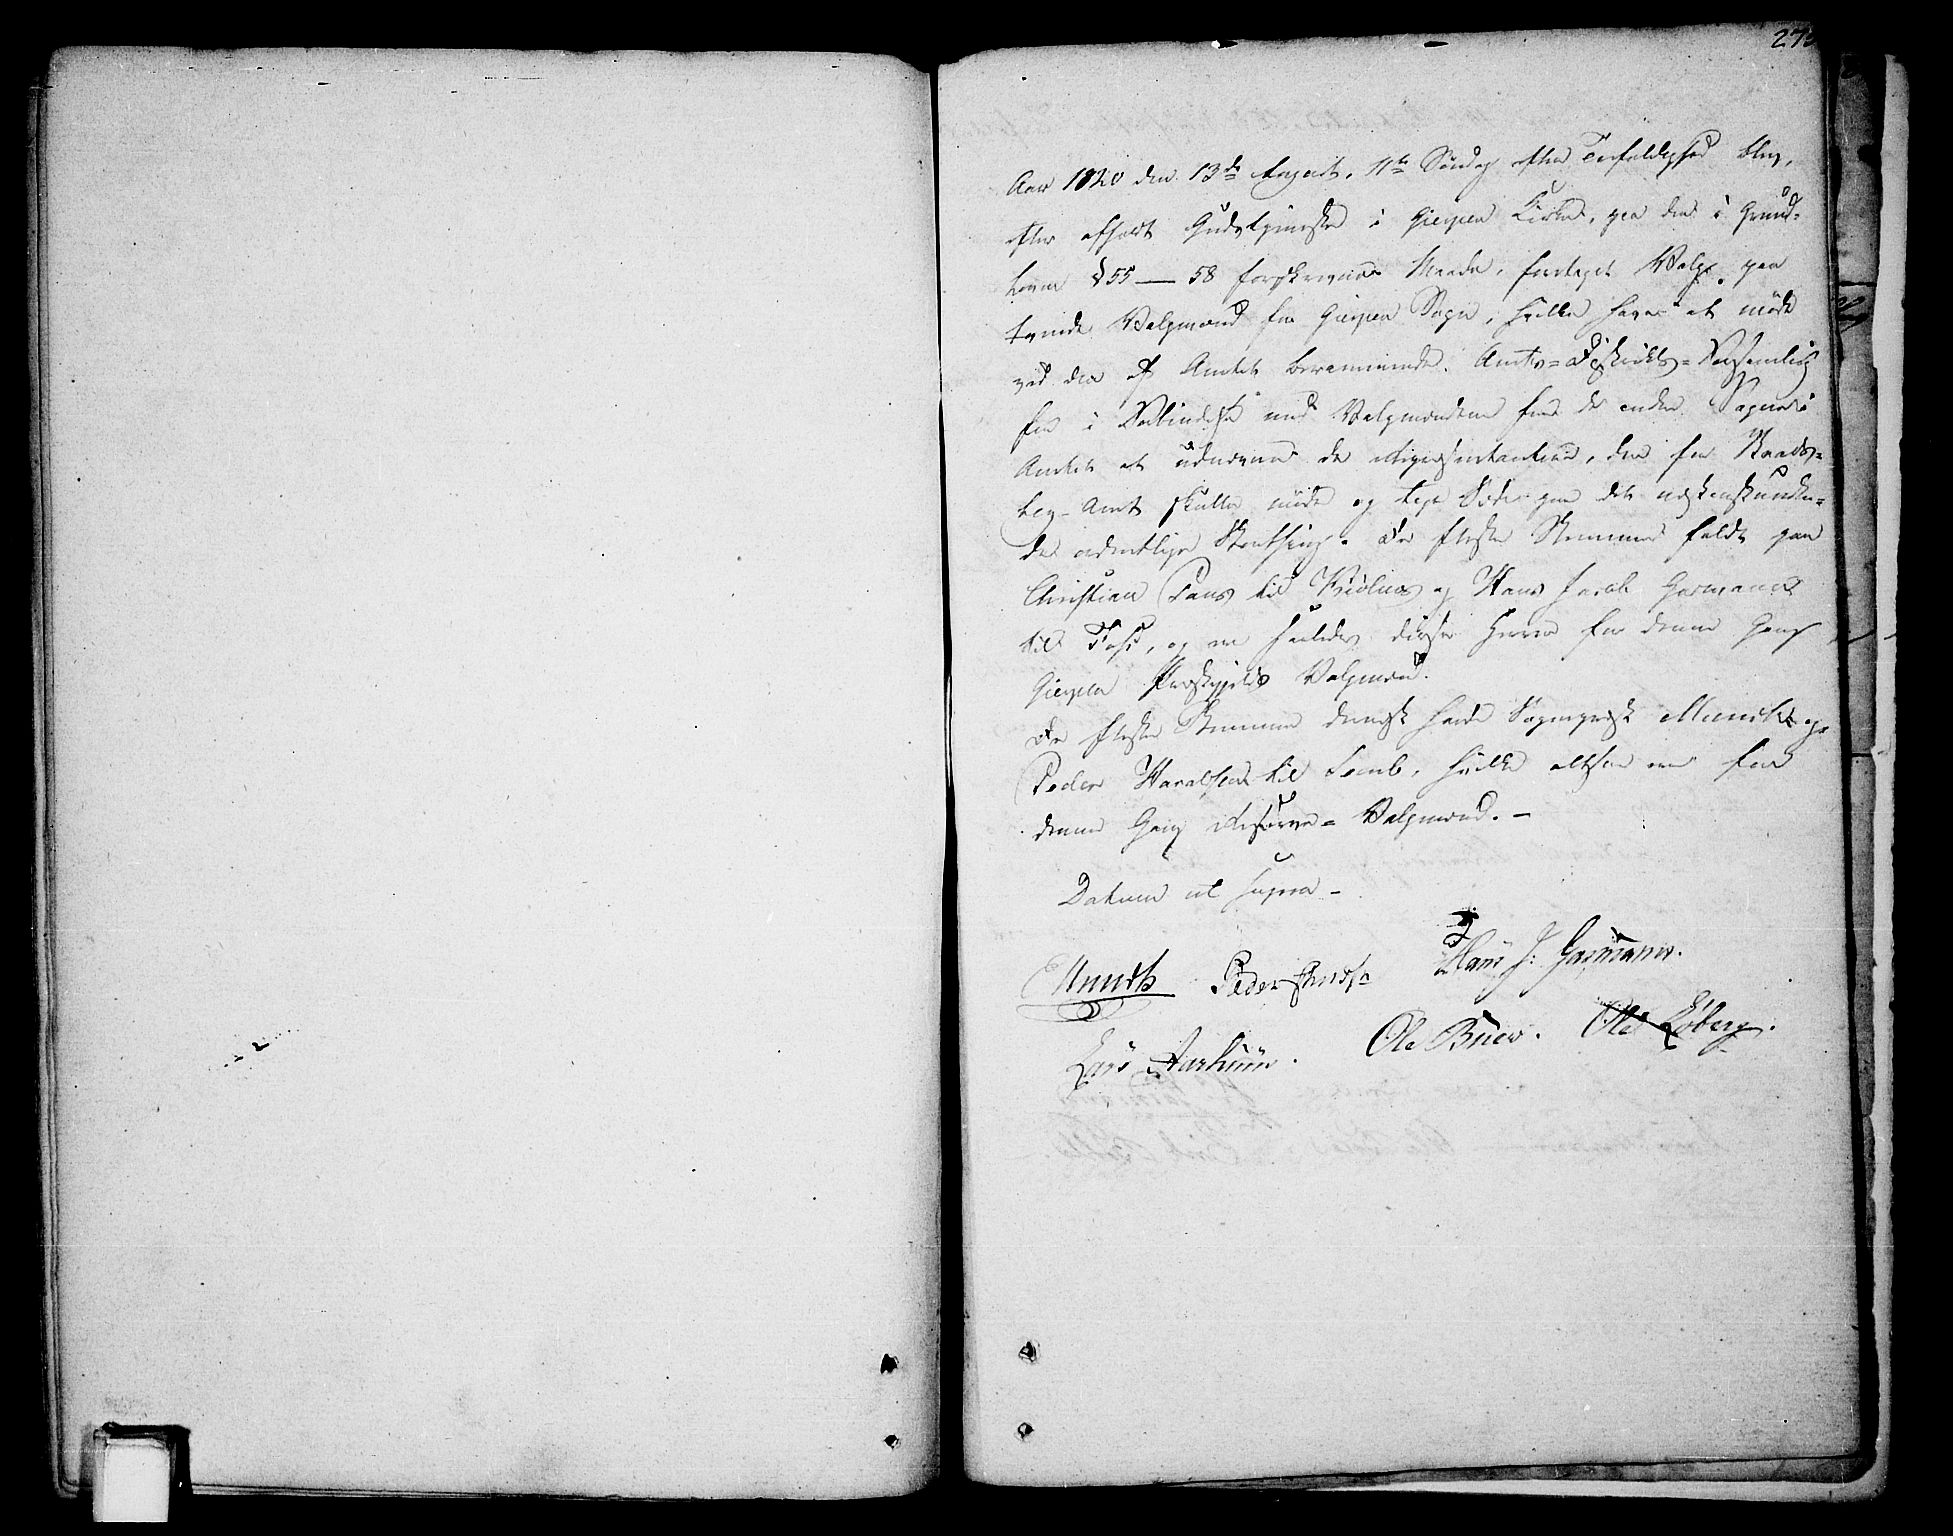 Aar 1820 den 13de August, 11te Søndag efter Trefoldighed blev,
efter afholdt Gudstjeneste i Gierpen Kirke, paa den i Grund-
loven § 55 — 58 forskrevne Maade, foretaget Valg paa
tvende Valgmænd for Gierpen Sogn, hvilke have at møde
ved den af Amtet berammende Amts-Distrikts-Forsamling
for i Forbindelse med Valgmændene fra de andre Sogne i
Amtet at udnævne de Repræsentantere, der for Bratsb-
erg-Amt skulle møde og tage Sæde paa det næstenstunden-
de ordentlige Storthing. De fleste Stemmer faldt paa
Christian Paus til Kiølnæs og Hans Jacob Garmann
til Foss, og ere saaledes disse Herrer for denne Gang
Gierpen Præstegjelds Valgmænd.
De fleste Stemmer dernæst havde Sognepræst Munch og
Peder Haraldsen til Limb, hvilke altsaa ere for
denne Gang Reserve-Valgmænd. –
Datum ut supra –
Munch Peder Hans J: Garmann.
Lars Aarhuus. Ole Bue. Ole Løberg.